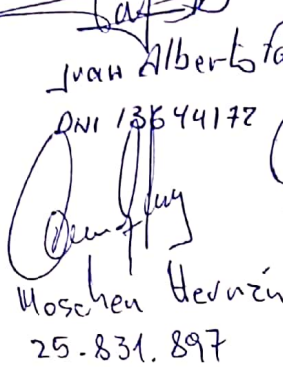 Juan Alberto
DNI 13644172
Moschen Hernán
25.831.897